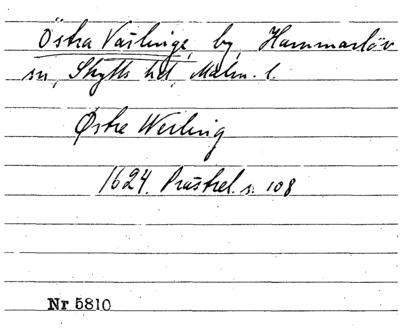 Östra Värlinge, by, Hammarlöv
sn, Skytts hd, Malm. l.
Østre Werling
1624. Prästrel. s. 108
Nr 5810